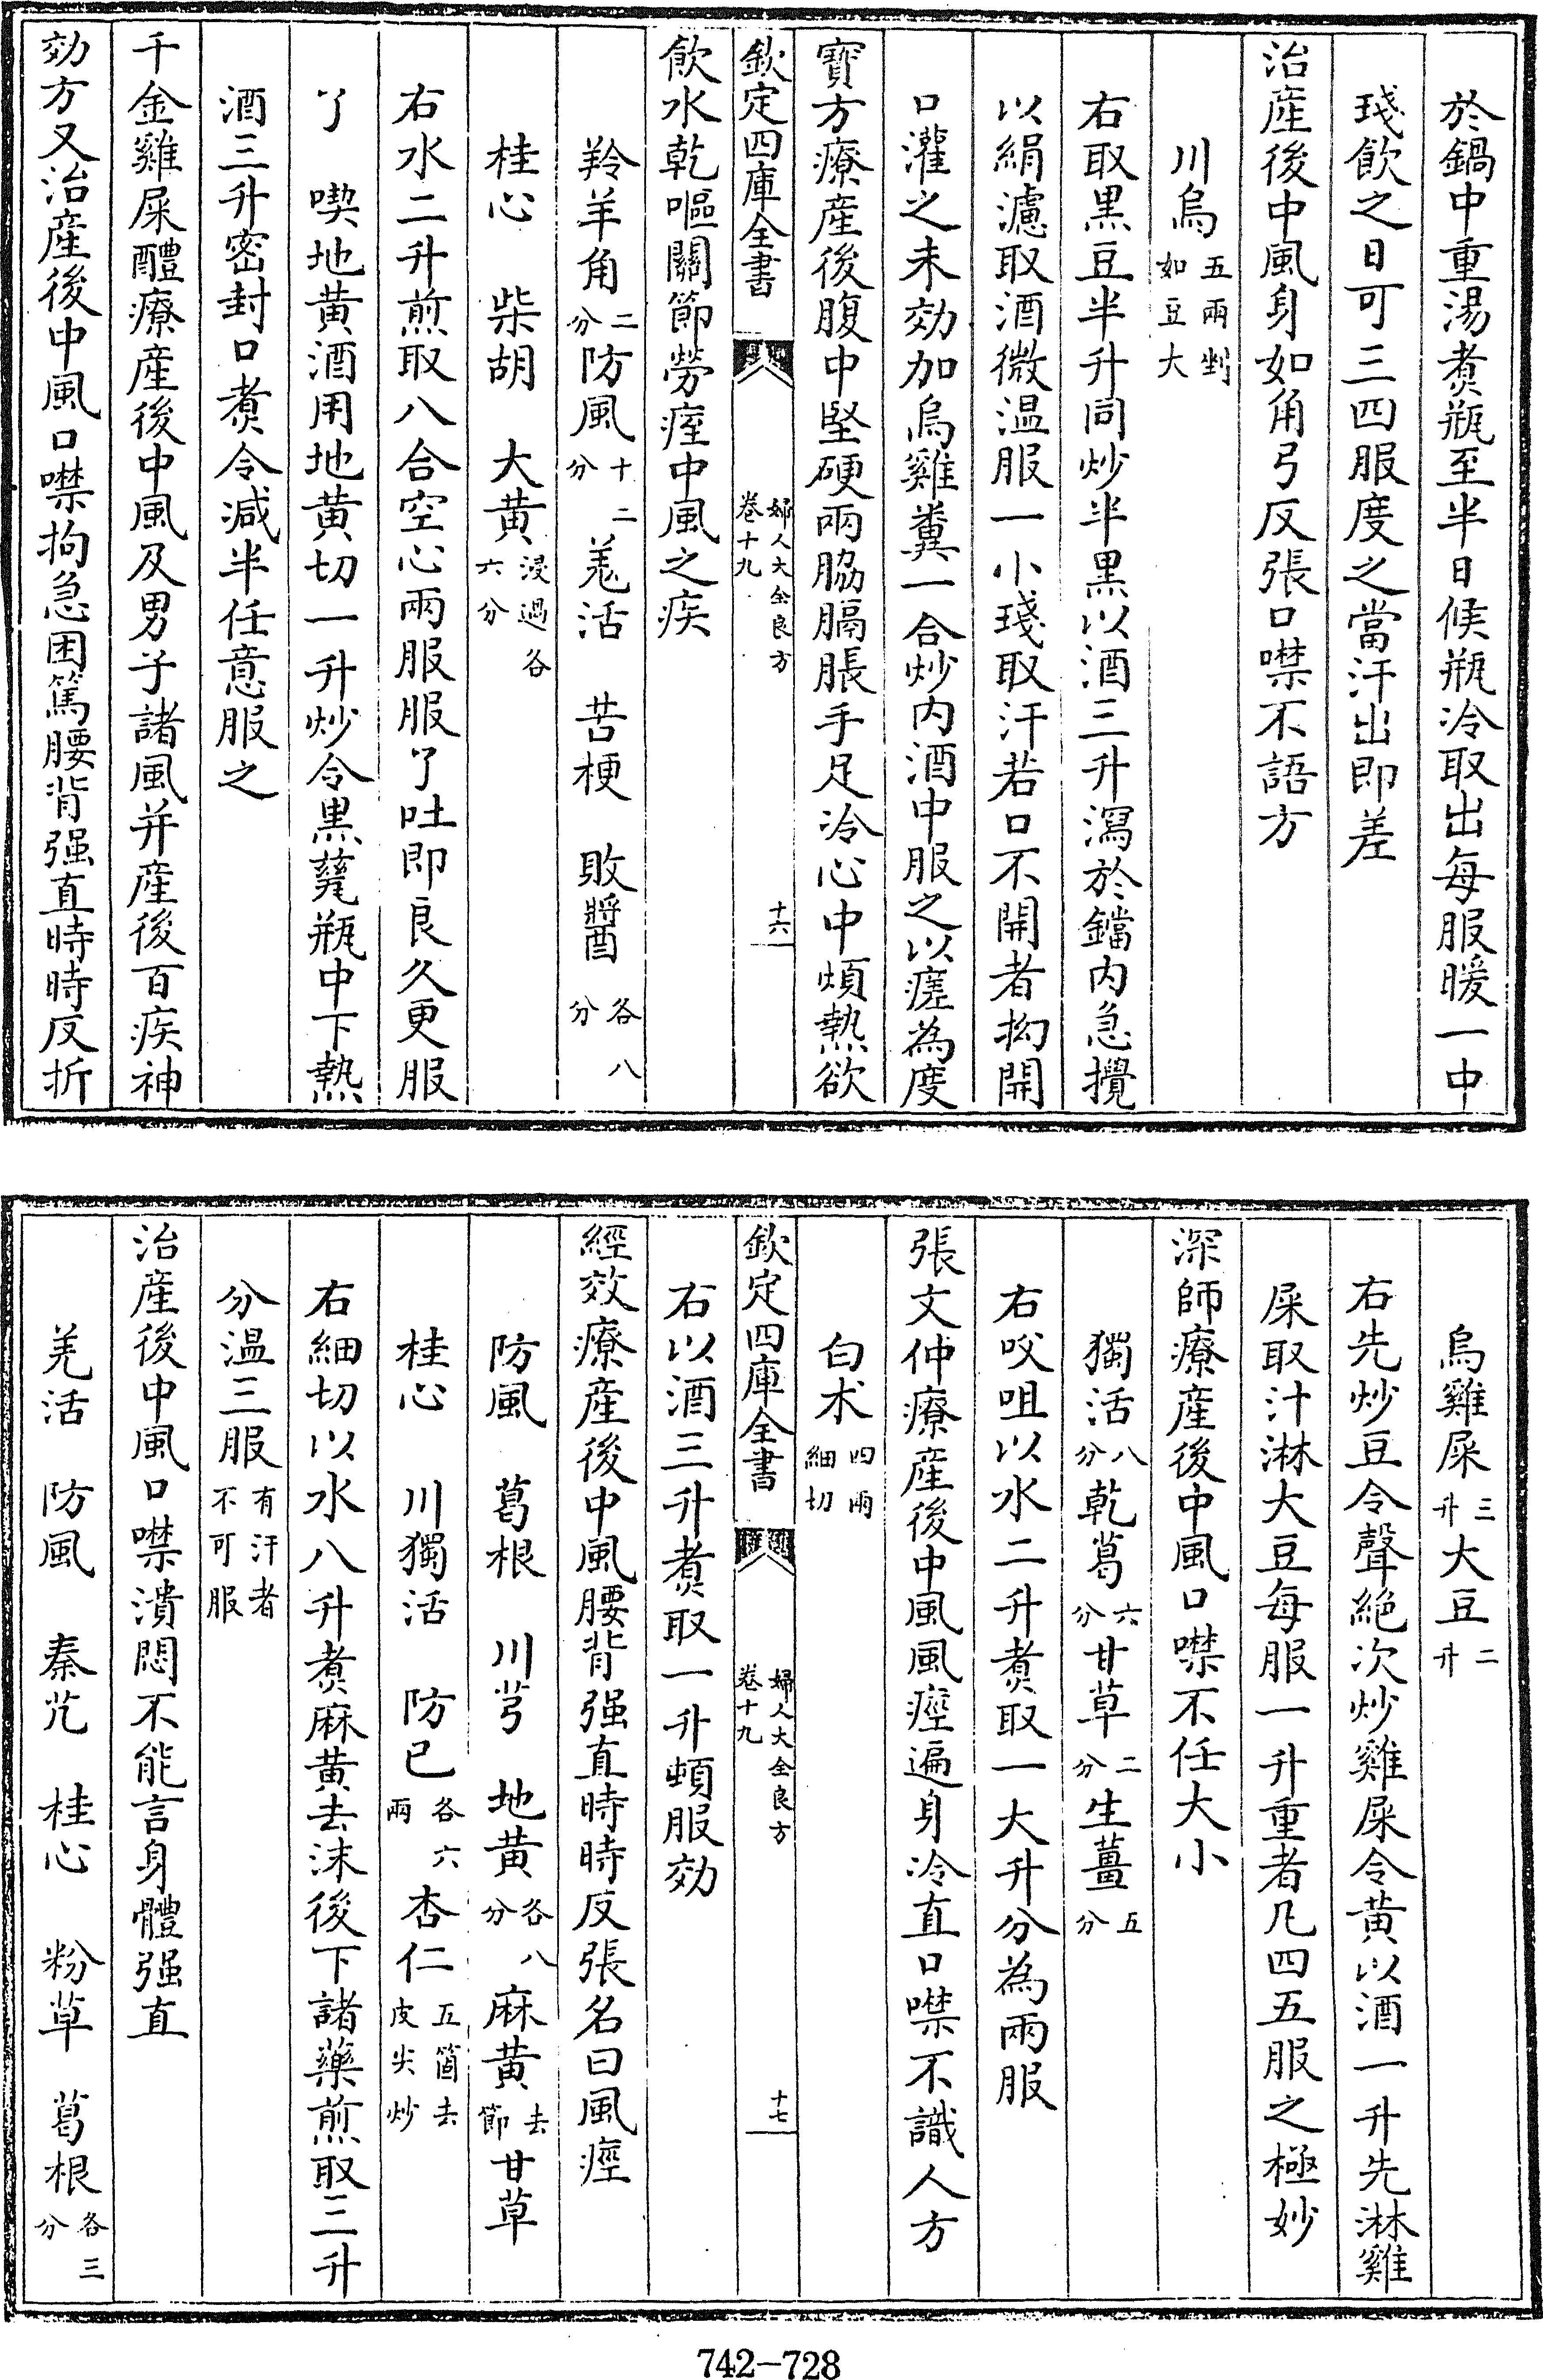 於鍋中重湯煮瓶至半日候瓶冷取出每服暖一中
琖飲之日可三四服度之當汗出即差
治産後中風身如角弓反張口噤不語方
川烏五兩剉如豆大
右取黒豆半升同炒半黒以酒三升瀉於鐺内急攪
以絹濾取酒微温服一小琖取汗若口不開者拗開
口灌之未効加烏雞糞一合炒内酒中服之以瘥為度
寶方療産後腹中堅硬兩脇膈脹手足冷心中煩熱欲
欽定四庫全書 婦人大全良方 卷十九 十六
飲水乾嘔關節勞痓中風之疾
羚羊角二分防風十二分羌活 苦梗 敗醬各八分
桂心 柴胡 大黄浸過各六分
右水二升煎取八合空心兩服服了吐即良久更服
了 喫地黄酒用地黄切一升炒令黒瓷瓶中下熱
酒三升密封口煮令減半任意服之
千金雞屎醴療産後中風及男子諸風并産後百疾神
効方又治産後中風口噤拘急困篤腰背强直時時反折
烏雞屎三升大豆二升
右先炒豆令聲絶次炒雞屎令黄以酒一升先淋雞
屎取汁淋大豆每服一升重者凡四五服之極妙
深師療産後中風口噤不任大小
獨活八分乾葛六分甘草二分生薑五分
右㕮咀以水二升煮取一大升分為兩服
張文仲療産後中風風痙遍身冷直口噤不識人方
白术四兩細切
欽定四庫全書 婦人大全良方 卷十九 十七
右以酒三升煮取一升頓服効
經效療産後中風腰背强直時時反張名曰風痙
防風 葛根 川芎 地黄各八分麻黄去節甘草
桂心 川獨活 防已各六兩杏仁五箇去皮尖炒
右細切以水八升煮麻黄去沫後下諸藥煎取三升
分温三服有汗者不可服
治産後中風口噤潰悶不能言身體强直
羌活 防風 秦艽 桂心 粉草 葛根各三分
742-728